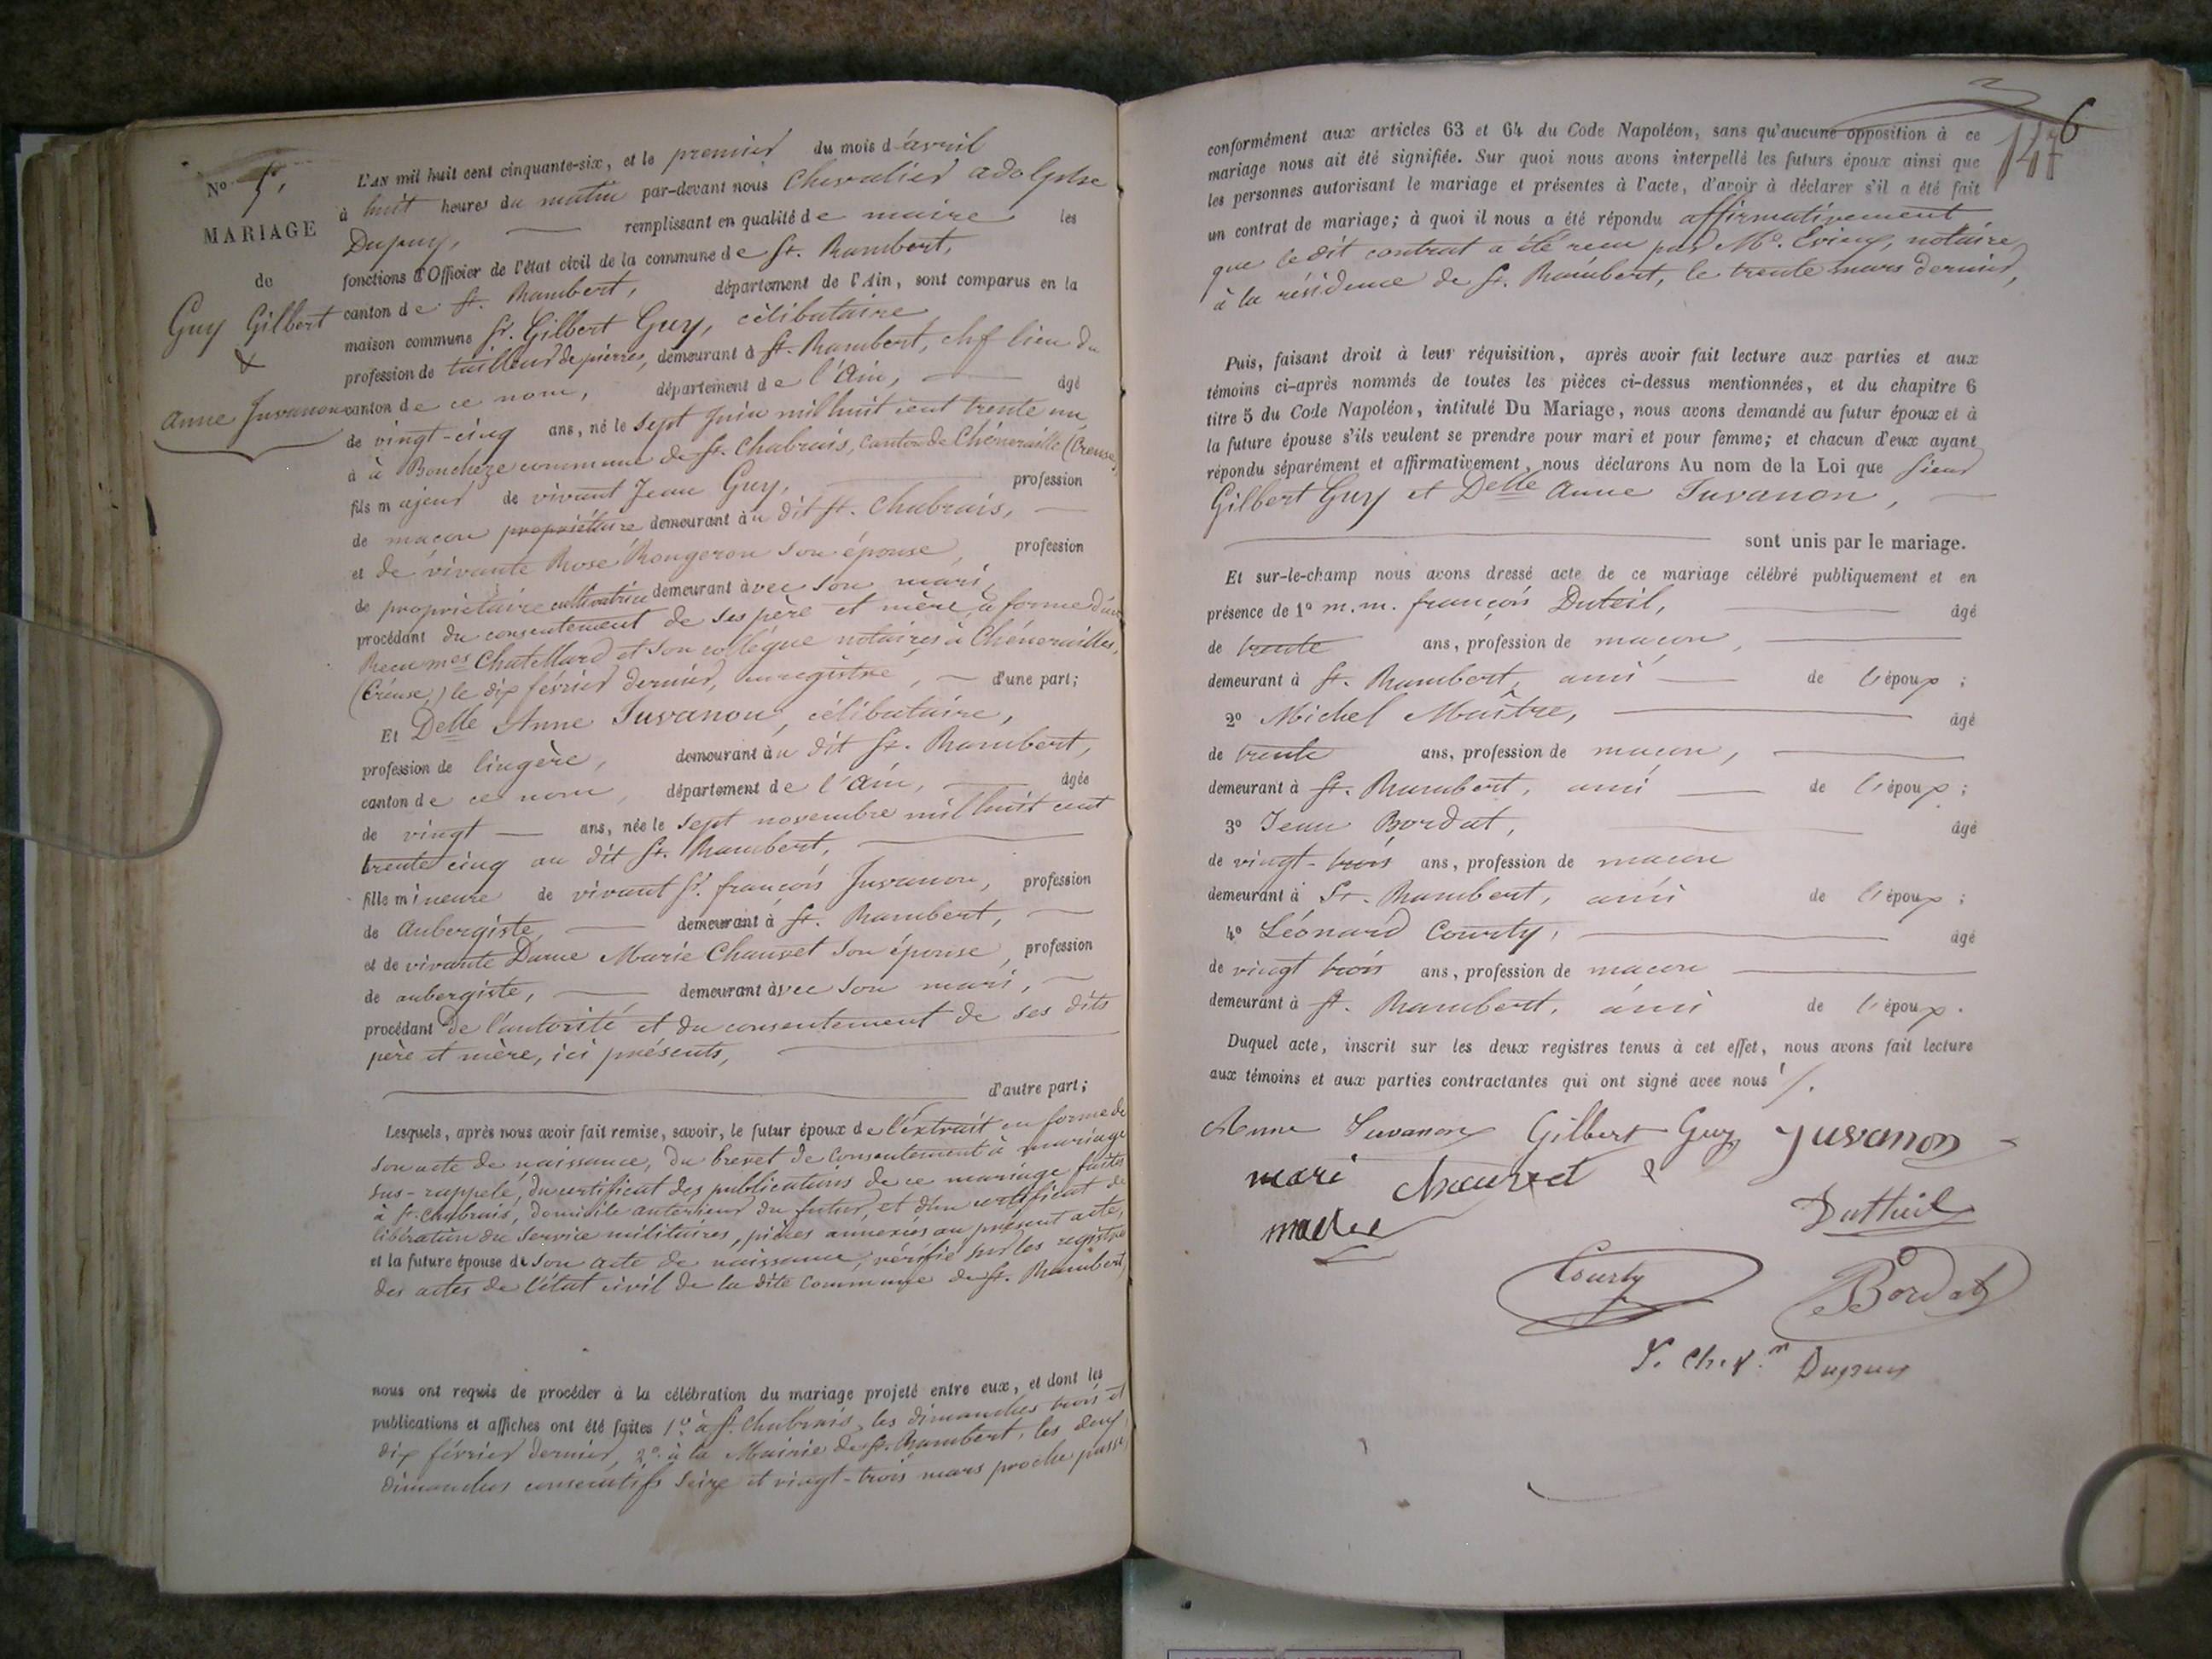 No 5,
MARIAGE
de
Guy Gilbert
&
Anne Juvanon
L'AN mil huit cent cinquante-six, et le premier du mois d'avril
à huit heures du matin par-devant nous Chevalier adolphe
Dupuy, remplissant en qualité de maire les
fonctions d'Officier de l'état civil de la commune de St. Rambert,
canton de St. Rambert, département de l'Ain, sont comparus en la
maison commune Sr. Gilbert Guy, célibataire
profession de tailleur de pierres, demeurant à St. Rambert, chef lieu du
canton de ce nom, département de l'Ain, âgé
de vingt-cinq ans, né le sept juin mil huit cent trente un
à à Boucheze commune de St. Chabrais, canton de Chéneraille (Creuse)
fils majeur de vivant Jean Guy, profession
de maçon propriétaire demeurant à u dit St. Chabrais,
et de vivante Rose Rougeron son épouse, profession
de propriétaire cultivatrice demeurant avec son mari,
procédant du consentement de ses père et mère, à forme d'un
Recu mes Chatellard et son collègue notaires à Chénerailles,
(Creuse,) le dix février dernier, enregistré, d'une part;
Et Delle Anne Juvanon, célibataire,
profession de lingère, demeurant à u dit St. Rambert,
canton de ce nom, département de l'Ain, âgée
de vingt ans, née le sept novembre mil huit cent
trente cinq au dit St. Rambert,
fille mineure de vivant Sr. françois Juvanon, profession
de Aubergiste, demeurant à St. Rambert,
et de vivante Dame Marie Chauvet son épouse, profession
de aubergiste, demeurant avec son mari,
procédant de l'autorité et du consentement de ses dits
père et mère, ici présents,
d'autre part;
Lesquels, après nous avoir fait remise, savoir, le futur époux de l'extrait en forme de
son acte de naissance, du brevet de consentement à mariage
sus-rappelé, du certificat des publications de ce mariage faites
à St. Chabrais, domicile antérieur du futur, et d'un certificat de
libération du service militaires, pièces annexées au présent acte,
et la future épouse de son acte de naissance, vérifié sur les registres
des actes de l'état civil de la dite commune de St. Rambert,
nous ont requis de procéder à la célébration du mariage projeté entre eux, et dont les
publications et affiches ont été faites 1o. à St. Chabrais, les dimanches trois et
dix février dernier, 2o. à la Mairie de St. Rambert, les deux
dimanches consecutifs seize et vingt-trois mars proche passé,
6
147
conformément aux articles 63 et 64 du Code Napoléon, sans qu'aucune opposition à ce
mariage nous ait été signifiée. Sur quoi nous avons interpellé les futurs époux ainsi que
les personnes autorisant le mariage et présentes à l'acte, d'avoir à déclarer s'il a été fait
un contrat de mariage; à quoi il nous a été répondu affirmativement,
que le dit contrat a été reçu par Me. notaire
à la résidence de St. Rambert, le trente mars dernier,
Puis, faisant droit à leur réquisition, après avoir fait lecture aux parties et aux
témoins ci-après nommés de toutes les pièces ci-dessus mentionnées, et du chapitre 6
titre 5 du Code Napoléon, intitulé Du Mariage, nous avons demandé au futur époux et à
la future épouse s'ils veulent se prendre pour mari et pour femme; et chacun d'eux ayant
répondu séparément et affirmativement, nous déclarons Au nom de la Loi que sieur
Gilbert Guy et Delle Anne Juvanon,
sont unis par le mariage.
Et sur-le-champ nous avons dressé acte de ce mariage célébré publiquement et en
présence de 1o m.m. françois Duteil, âgé
de trente ans, profession de maçon,
demeurant à St. Rambert, ami de l'époux;
2o Michel Maître, âgé
de trente ans, profession de maçon,
demeurant à St. Rambert, ami de l'époux;
3o Jean Bordat, âgé
de vingt-trois ans, profession de maçon
demeurant à St. Rambert, ami de l'époux;
4o Léonard Courty, âgé
de vingt trois ans, profession de maçon
demeurant à St. Rambert, ami de l'époux.
Duquel acte, inscrit sur les deux registres tenus à cet effet, nous avons fait lecture
aux témoins et aux parties contractantes qui ont signé avec nous /.
Anne Juvanon Gilbert Guy Juvanon
mari Chauvet
Dutheil
Courty Bordat
Dupuy